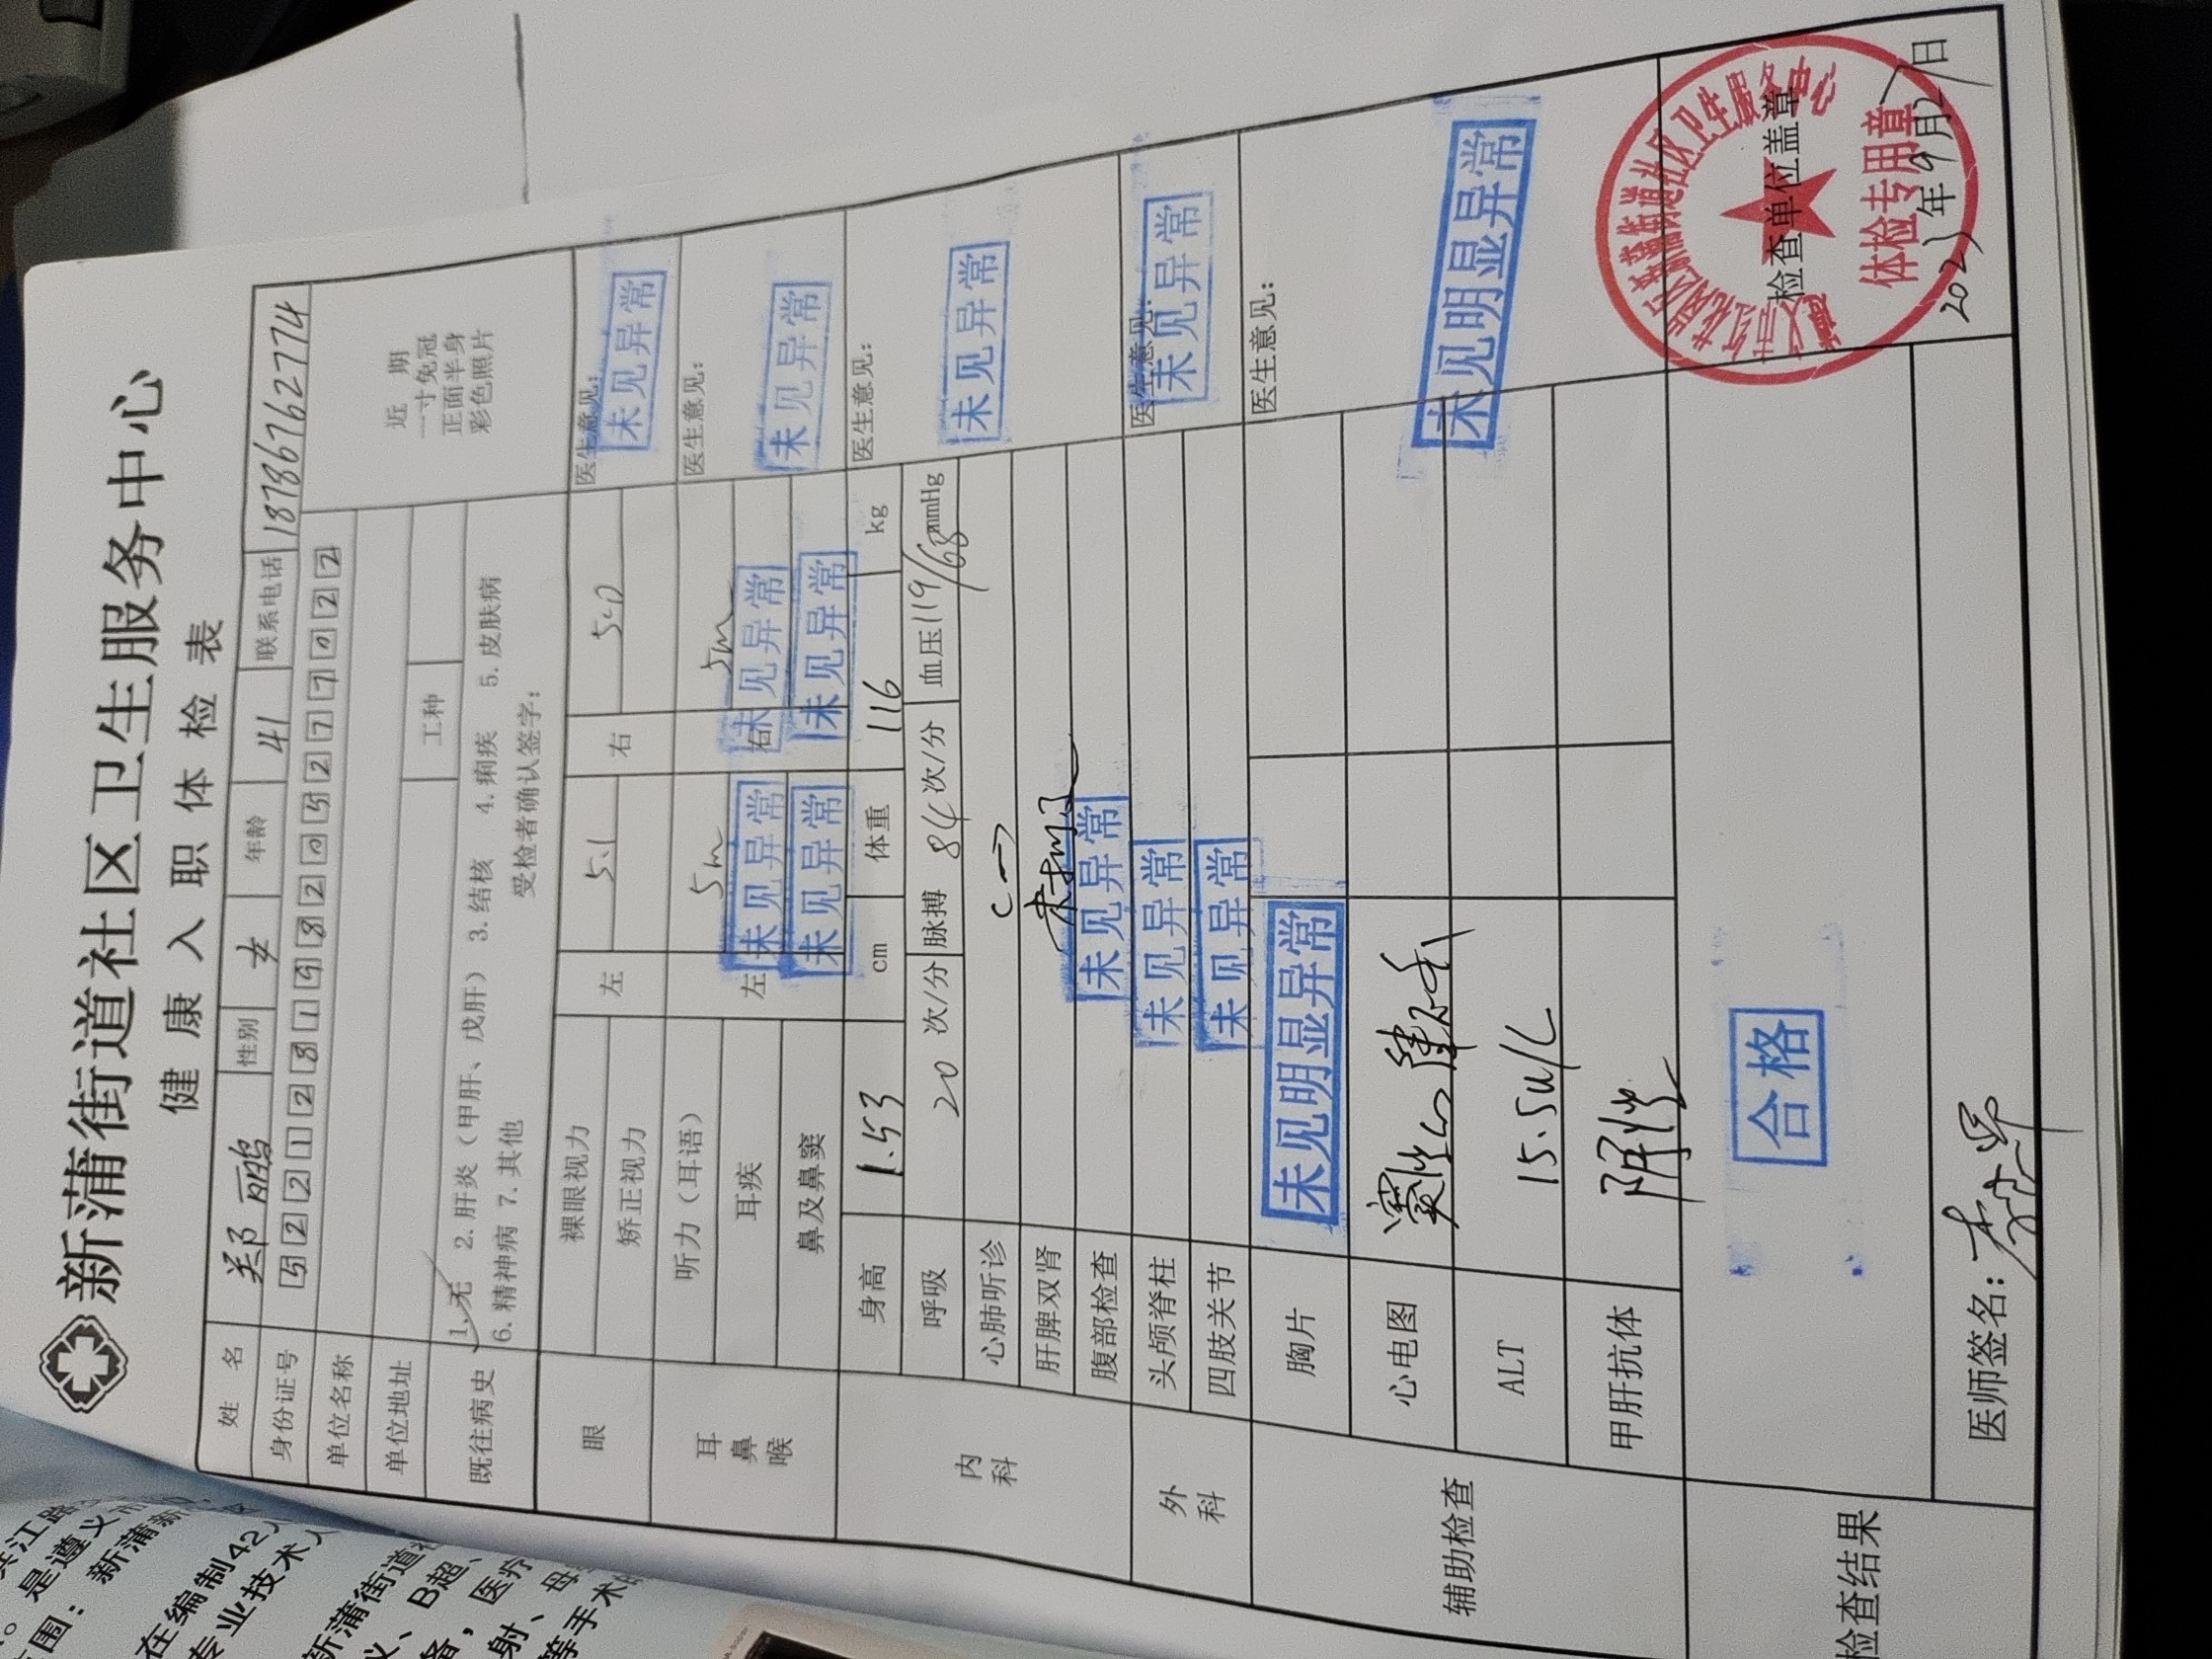 新蒲街道社区卫生服务中心
健康入职体检表
姓 名 郑丽鸥 性别 女 年龄 41 联系电话 18786762774
身份证号 522128198205277022
单位名称
单位地址 工种
近 期
一寸免冠
正面半身
彩色照片
既往病史 1.无 2.肝炎（甲肝、戊肝） 3.结核 4.痢疾 5.皮肤病
6.精神病 7.其他 受检者确认签字：
眼 裸眼视力 左 5.1 右 5.0 医生意见：
矫正视力 未见异常
耳鼻喉 听力（耳语） 左 5m 右 5m 医生意见：
耳疾 未见异常 未见异常 未见异常
鼻及鼻窦 未见异常 未见异常
内科 身高 1.53 cm 体重 116 kg 医生意见：
呼吸 20 次/分 脉搏 84 次/分 血压 119/68 mmHg
心肺听诊 (—) 未见异常
肝脾双肾 未扪及
腹部检查 未见异常
外科 头颅脊柱 未见异常 医生意见：
四肢关节 未见异常 未见异常
辅助检查 胸片 未见明显异常 医生意见：
心电图 窦性心律不齐
ALT 15.5u/L 未见明显异常
甲肝抗体 阴性
检查结果 合格
检查单位盖章
体检专用章
医师签名： 2023年9月27日
江路
。是遵义市
范围：新蒲新
在编制42人
专业技术人
新蒲街道社
义、B超、
备，医疗
射、母
等手术